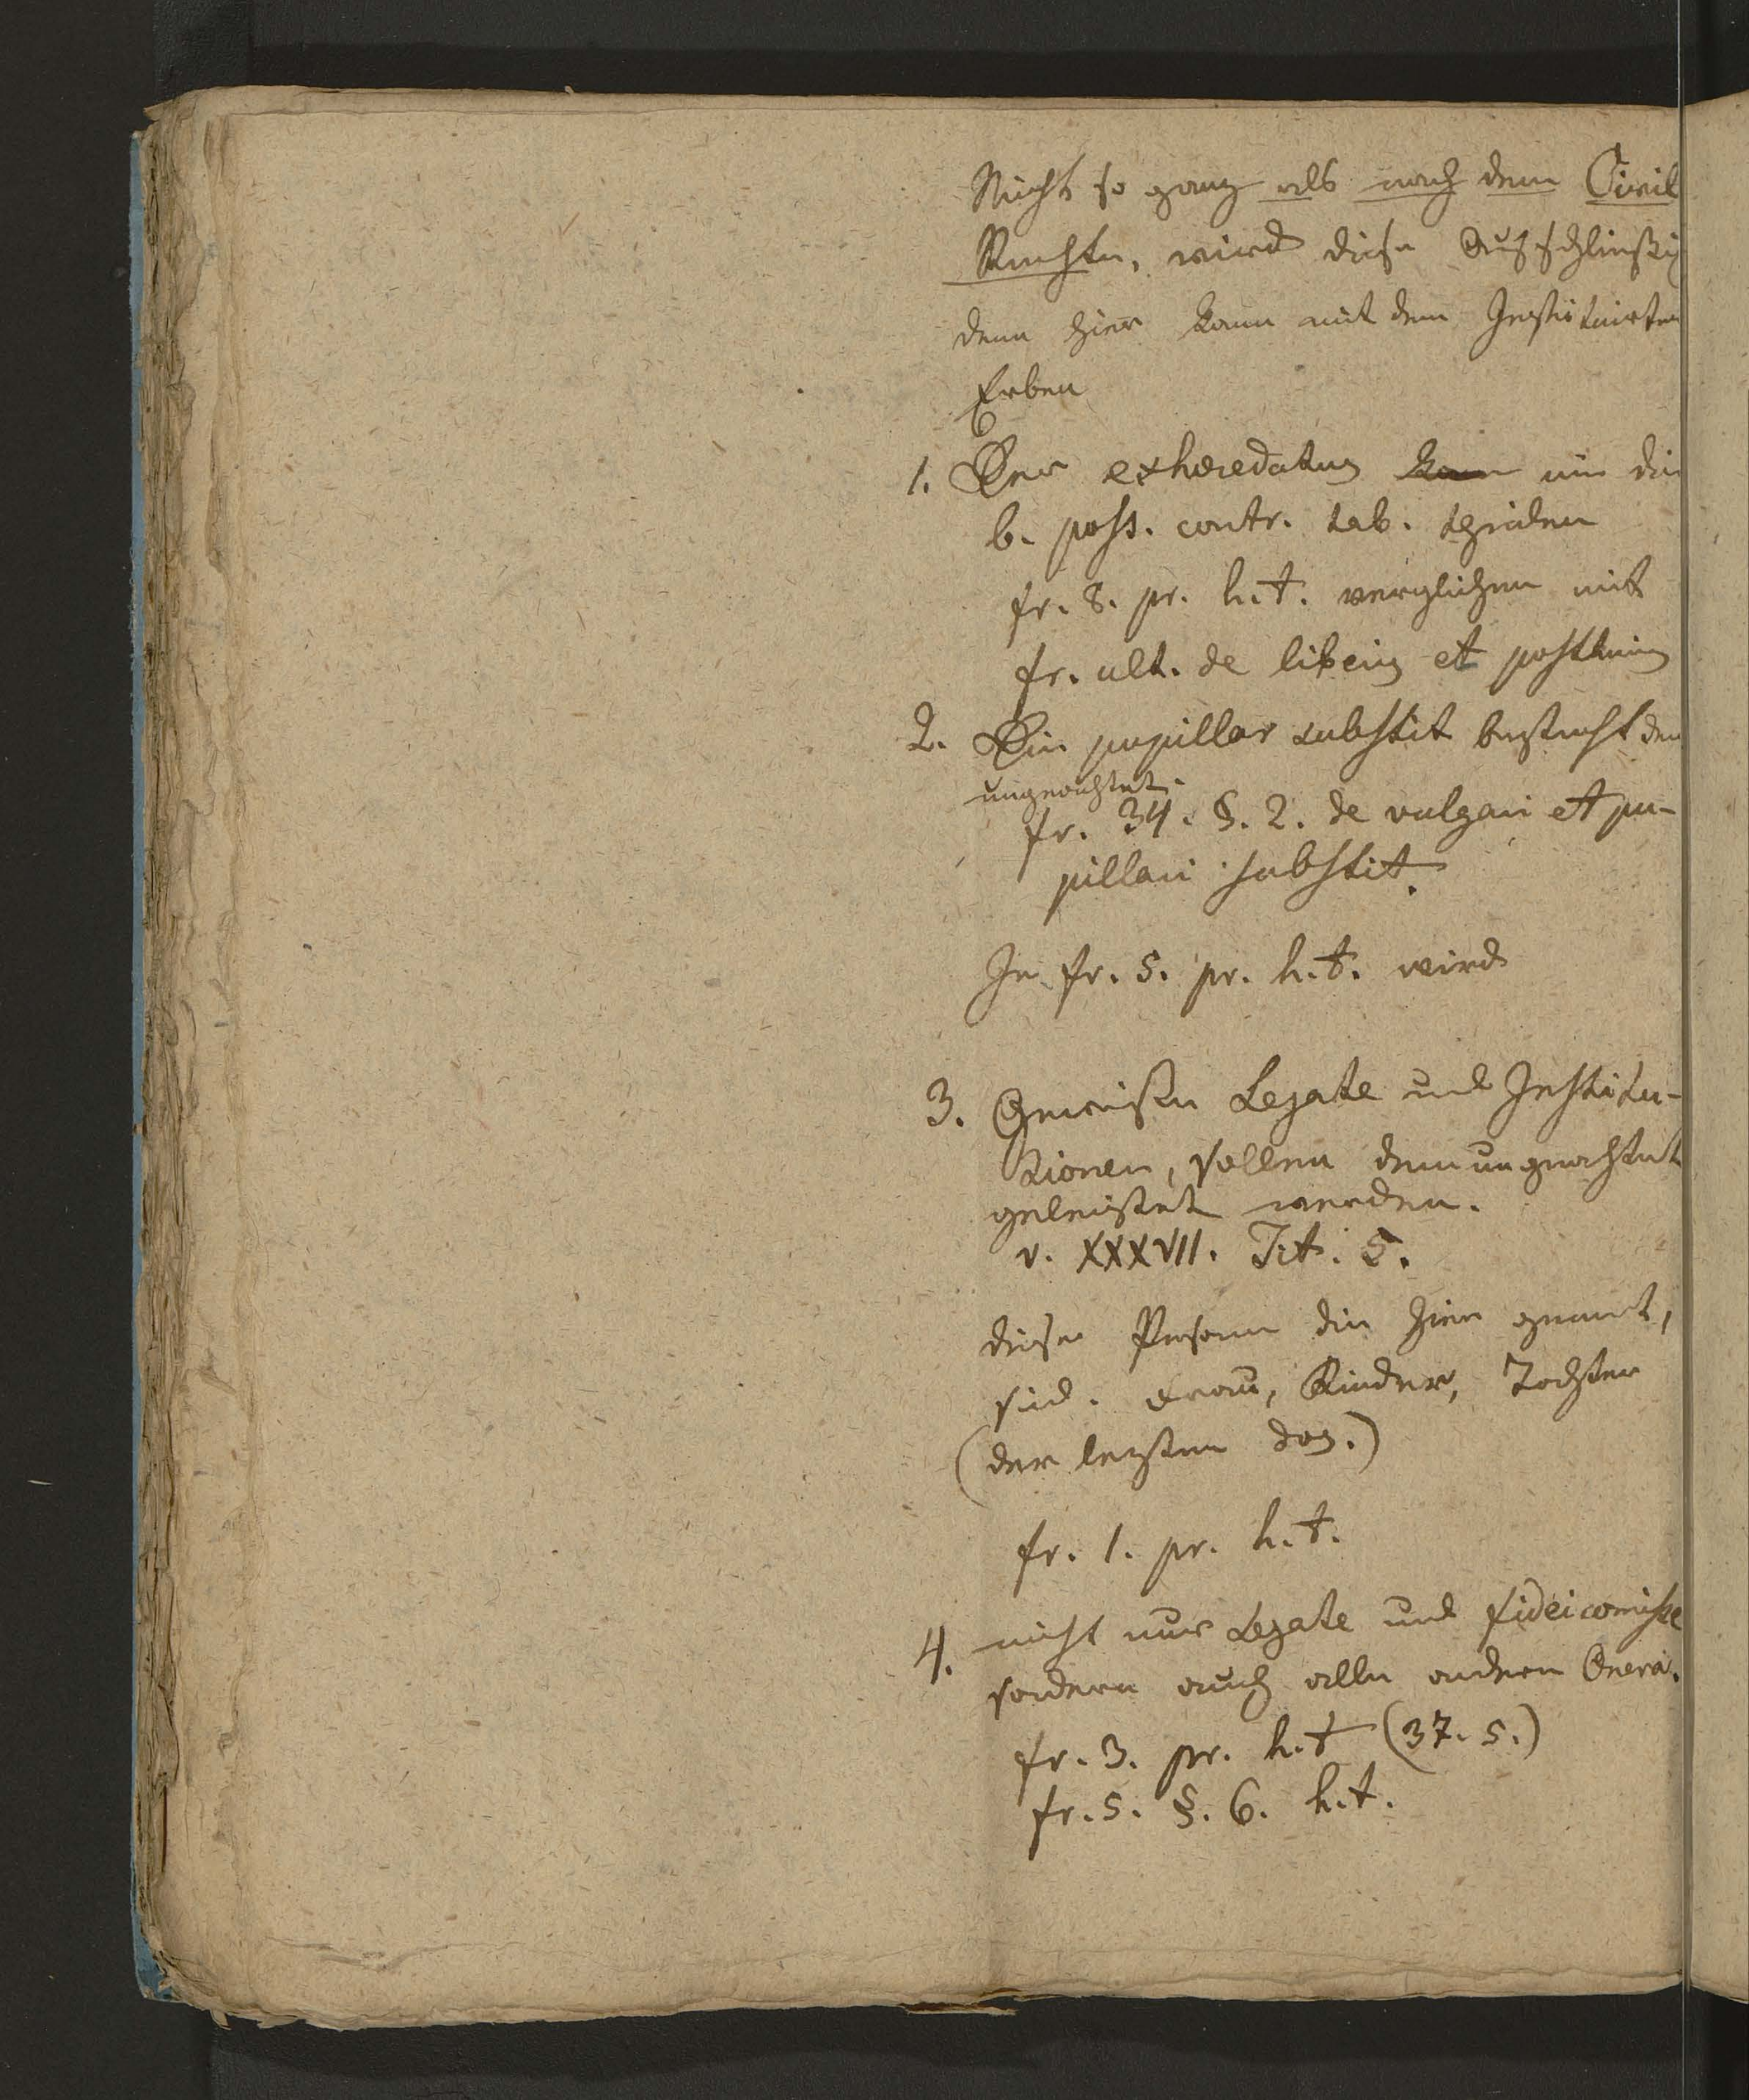 Nicht so ganz als nach dem Civil
Rechte, wird diese
denn hier kann mit dem Instituirten
Erben
1. Der exhæredatus kann nie die
b. poss. contr. tab. theilen
fr. 8. pr. h. t. verglichen mit
fr. ult. de liberis et posthumis
2. Die pupillar substit besteht dem
ungeachtet.
fr. 34. §. 2. de vulgari et pu-
pillari substit.
In fr. 5. pr. h. t. wird
3. Gewisse Legate und Institu-
tionen, sollen demungeachtet
geleistet werden.
v. XXXVII. Tit. 5.
diese Personen die hier genannt,
sind. Frau, Kinder, Tochter
(der letzten dos.)
fr. 1. pr. h. t.
4. nicht nur Legate und fideicomisse
sondern auch alle andern Onera.
fr. 3. pr. h. t (37. 5.)
fr. 5. §. 6. h. t.